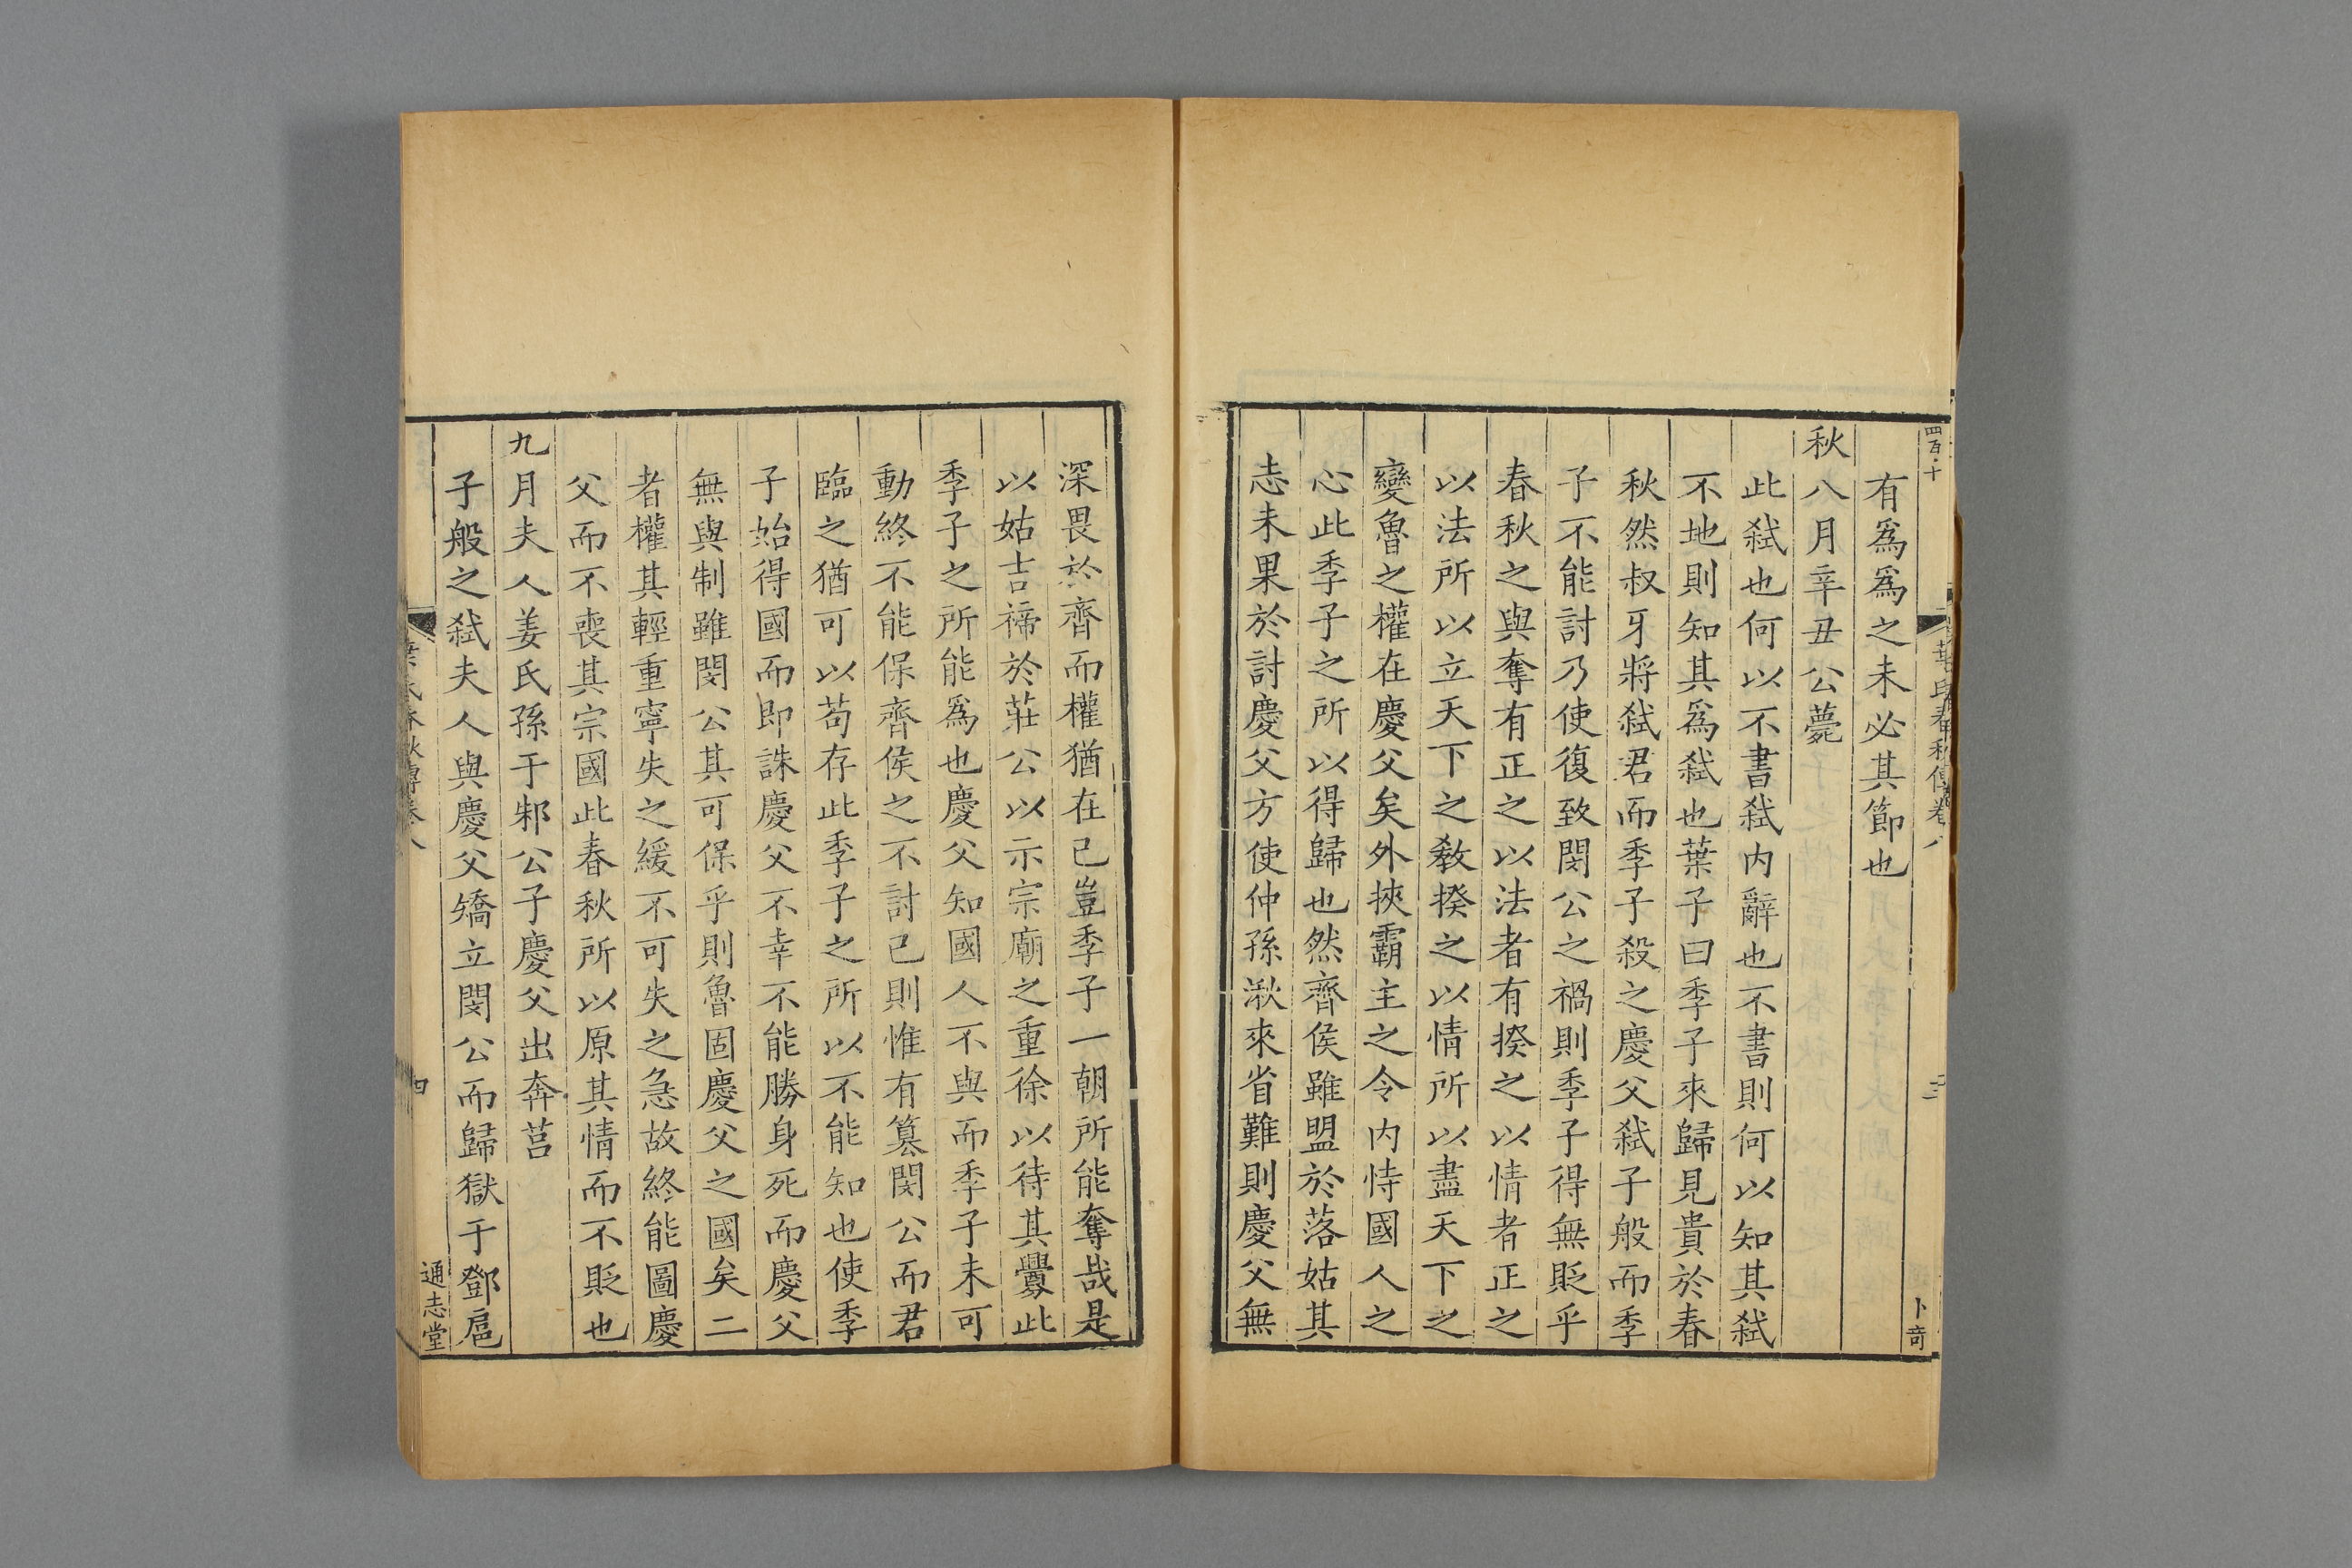 四百十
葉氏春秋傳卷八
三
卜奇
有爲爲之未必其節也
秋八月辛丑公薨
此弑也何以不書弑内辭也不書則何以知其弑
不地則知其爲弑也葉子曰季子來歸見貴於春
秋然叔牙將弑君而季子殺之慶父弑子般而季
子不能討乃使復致閔公之禍則季子得無貶乎
春秋之與奪有正之以法者有揆之以情者正之
以法所以立天下之敎揆之以情所以盡天下之
變魯之權在慶父矣外挾霸主之令内恃國人之
心此季子之所以得歸也然齊侯雖盟於落姑其
志未果於討慶父方使仲孫湫來省難則慶父無
深畏於齊而權猶在己豈季子一朝所能奪哉是
以姑吉禘於莊公以示宗廟之重徐以待其釁此
季子之所能爲也慶父知國人不與而季子未可
動終不能保齊侯之不討己則惟有簒閔公而君
臨之猶可以苟存此季子之所以不能知也使季
子始得國而即誅慶父不幸不能勝身死而慶父
無與制雖閔公其可保乎則魯固慶父之國矣二
者權其輕重寧失之緩不可失之急故終能圖慶
父而不喪其宗國此春秋所以原其情而不貶也
九月夫人姜氏孫于邾公子慶父出奔莒
子般之弑夫人與慶父矯立閔公而歸獄于鄧扈
葉氏春秋傳卷八
四
通志堂